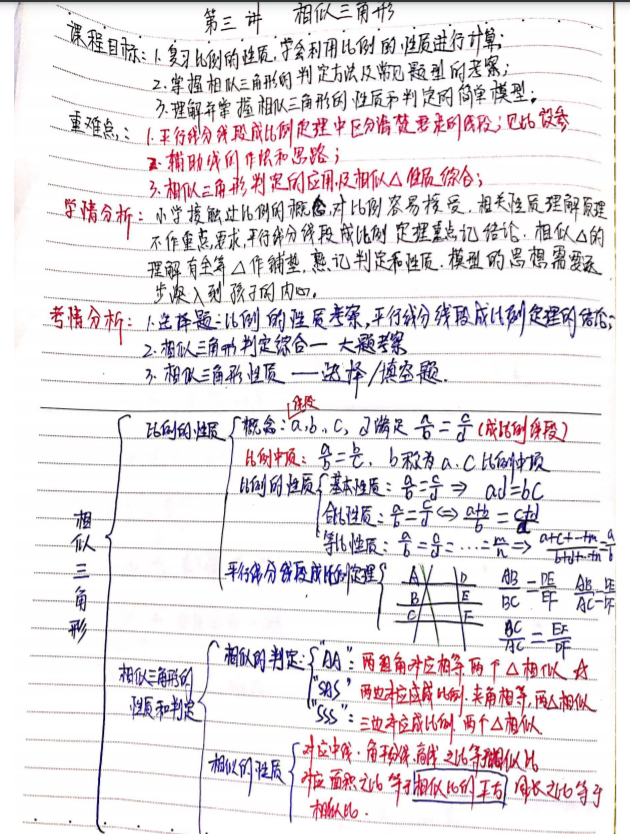 第三讲 相似三角形
课程目标：1.复习比例的性质，学会利用比例的性质进行计算。
2.掌握相似三角形的判定方法及常见题型的考察；
3.理解并掌握相似三角形的性质和判定的简单模型。
重难点：1.平行线分线段成比例定理中区分清楚要走的线段；见比设参
2.辅助线的作法和思路；
3.相似三角形判定的应用及相似△性质综合；
学情分析：小学接触过比例的概念，对比例容易接受，相关性质理解原理
不作重点要求，平行线分线段成比例定理重点记结论，相似△的
理解有全等△作铺垫，熟记判定和性质，模型的思想需要逐
步深入到孩子的内心。
考情分析：1.选择题：比例的性质考察，平行线分线段成比例定理的结论；
2.相似三角形判定综合—大题考察
3.相似三角形性质——选择/填空题.
相似三角形
比例的性质
线段
概念：a、b、c、d满足 a/b=c/d（成比例线段）
比例中项：a/b=b/c，b称为a、c比例中项
比例的性质
基本性质：a/b=c/d ⇒ ad=bc
合比性质：a/b=c/d ⇔ (a+b)/b=(c+d)/d
等比性质：a/b=c/d=……=m/n ⇒ (a+c+…+m)/(b+d+…+n)=a/b
平行线分线段成比例定理
A D
B E
C F
AB/BC=DE/EF AB/AC=DE/DF
BC/AC=EF/DF
相似三角形的性质和判定
相似的判定：
"AA"：两组角对应相等，两个△相似 ☆
"SAS" 两边对应成比例，夹角相等，两△相似
"SSS"：三边对应成比例，两个△相似
相似的性质
对应中线、角平分线、高线之比等于相似比
对应面积之比等于相似比的平方 周长之比等于
相似比.